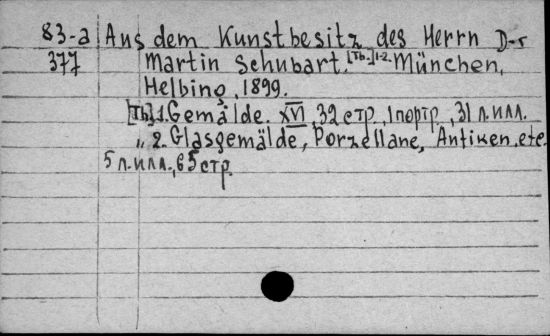 83-а Aus dem Kunstbesitz des Herrn D-r
377 Martin Schubart. [Th.] 1-2. München,
Helbing, 1899.
[Th.] 1. Gemälde. XVI, 32 стр., 1 портр., 31 л. илл.
" 2. Glasgemälde, Porzellane, Antiken, etc.
5 л. илл., 65 стр.